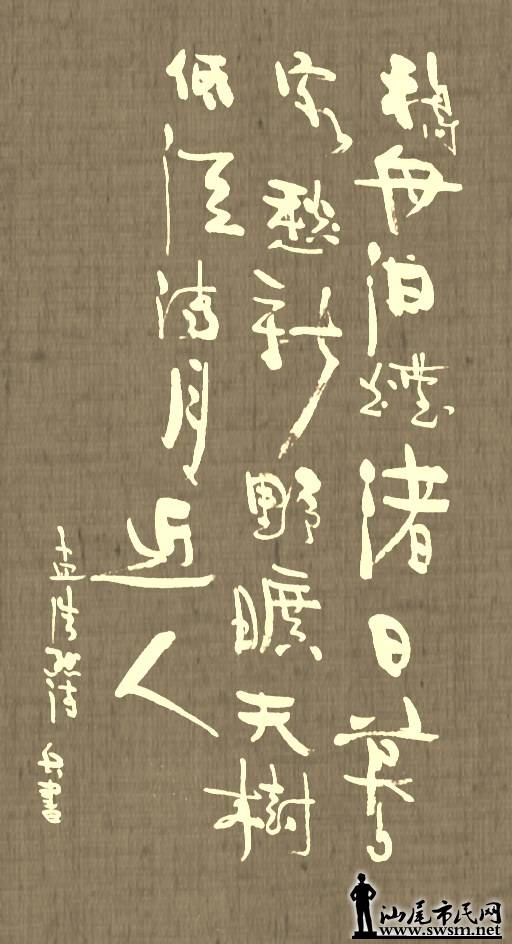 移舟泊煙渚日暮
客愁新野曠天樹
低江清月近人
孟浩然詩 兵書
汕尾市民网
www.swsm.net